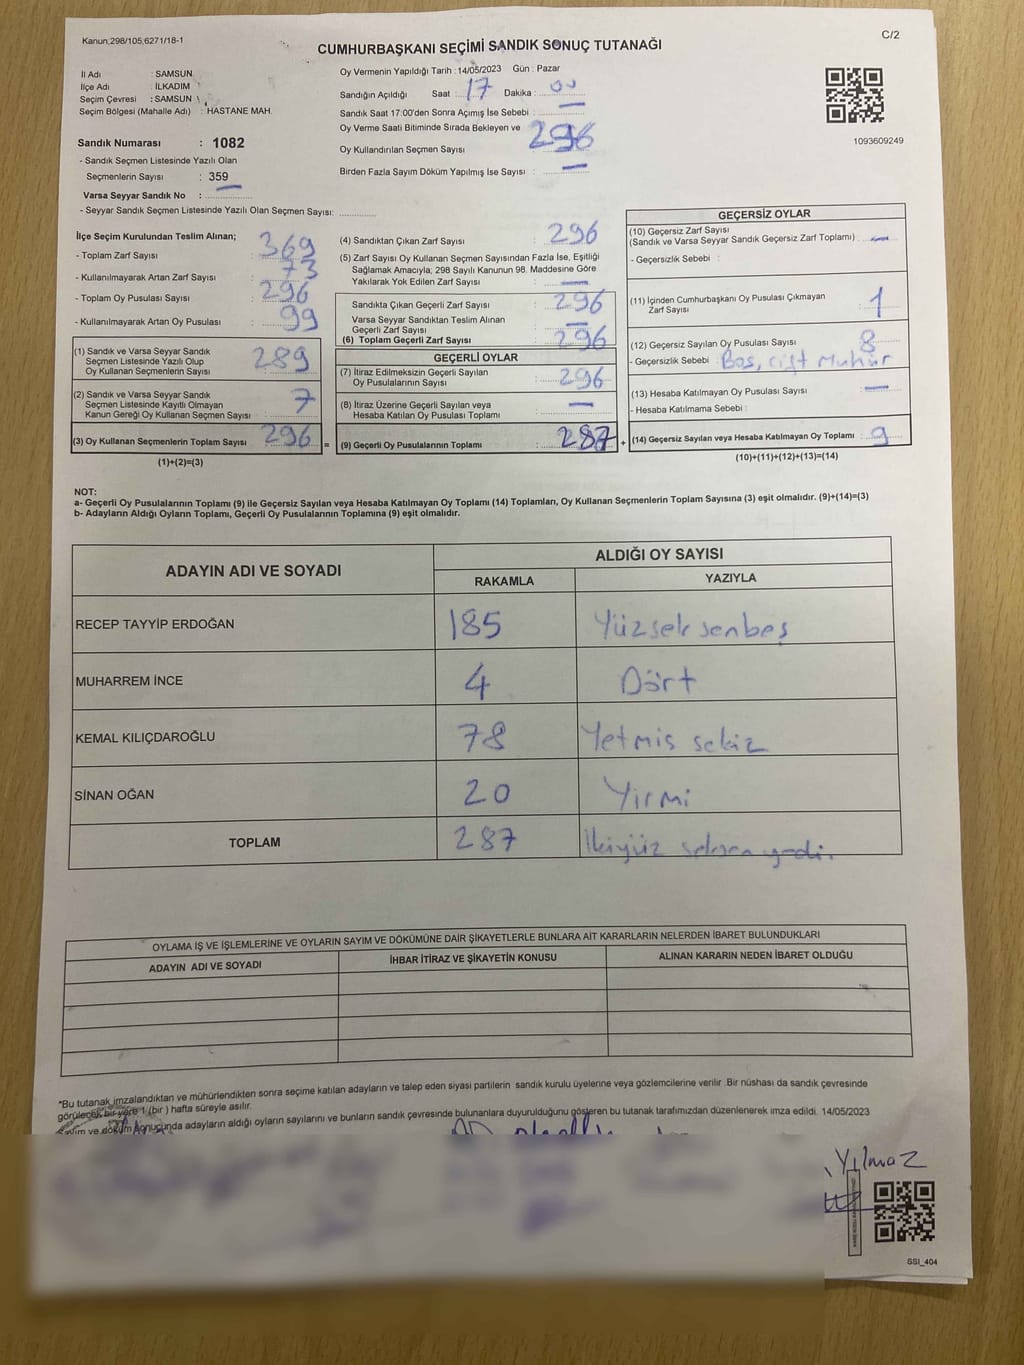 Kanun,298/105,6271/18-1
C/2
CUMHURBAŞKANI SEÇİMİ SANDIK SONUÇ TUTANAĞI
İl Adı : SAMSUN
İlçe Adı : İLKADIM
Seçim Çevresi : SAMSUN
Seçim Bölgesi (Mahalle Adı) : HASTANE MAH.
Sandık Numarası : 1082
- Sandık Seçmen Listesinde Yazılı Olan
Seçmenlerin Sayısı : 359
Varsa Seyyar Sandık No : —
- Seyyar Sandık Seçmen Listesinde Yazılı Olan Seçmen Sayısı:
Oy Vermenin Yapıldığı Tarih : 14/05/2023 Gün : Pazar
Sandığın Açıldığı Saat : 17 Dakika : 00
Sandık Saat 17:00'den Sonra Açımış İse Sebebi : —
Oy Verme Saati Bitiminde Sırada Bekleyen ve
Oy Kullandırılan Seçmen Sayısı : 296
Birden Fazla Sayım Döküm Yapılmış İse Sayısı : —
1093609249
İlçe Seçim Kurulundan Teslim Alınan;
- Toplam Zarf Sayısı : 369
- Kullanılmayarak Artan Zarf Sayısı : 73
- Toplam Oy Pusulası Sayısı : 296
- Kullanılmayarak Artan Oy Pusulası : 99
(1) Sandık ve Varsa Seyyar Sandık
Seçmen Listesinde Yazılı Olup
Oy Kullanan Seçmenlerin Sayısı : 289
(2) Sandık ve Varsa Seyyar Sandık
Seçmen Listesinde Kayıtlı Olmayan
Kanun Gereği Oy Kullanan Seçmen Sayısı : 7
(3) Oy Kullanan Seçmenlerin Toplam Sayısı : 296 =
(1)+(2)=(3)
(4) Sandıktan Çıkan Zarf Sayısı : 296
(5) Zarf Sayısı Oy Kullanan Seçmen Sayısından Fazla İse, Eşitliği
Sağlamak Amacıyla; 298 Sayılı Kanunun 98. Maddesine Göre
Yakılarak Yok Edilen Zarf Sayısı : —
Sandıkta Çıkan Geçerli Zarf Sayısı : 296
Varsa Seyyar Sandıktan Teslim Alınan
Geçerli Zarf Sayısı : —
(6) Toplam Geçerli Zarf Sayısı : 296
GEÇERLİ OYLAR
(7) İtiraz Edilmeksizin Geçerli Sayılan
Oy Pusulalarının Sayısı : 296
(8) İtiraz Üzerine Geçerli Sayılan veya
Hesaba Katılan Oy Pusulası Toplamı : —
(9) Geçerli Oy Pusulalarının Toplamı : 287 +
GEÇERSİZ OYLAR
(10) Geçersiz Zarf Sayısı
(Sandık ve Varsa Seyyar Sandık Geçersiz Zarf Toplamı) : —
- Geçersizlik Sebebi :
(11) İçinden Cumhurbaşkanı Oy Pusulası Çıkmayan
Zarf Sayısı : 1
(12) Geçersiz Sayılan Oy Pusulası Sayısı : 8
- Geçersizlik Sebebi : Boş, çift Mühür
(13) Hesaba Katılmayan Oy Pusulası Sayısı : —
- Hesaba Katılmama Sebebi :
(14) Geçersiz Sayılan veya Hesaba Katılmayan Oy Toplamı : 9
(10)+(11)+(12)+(13)=(14)
NOT:
a- Geçerli Oy Pusulalarının Toplamı (9) ile Geçersiz Sayılan veya Hesaba Katılmayan Oy Toplamı (14) Toplamları, Oy Kullanan Seçmenlerin Toplam Sayısına (3) eşit olmalıdır. (9)+(14)=(3)
b- Adayların Aldığı Oyların Toplamı, Geçerli Oy Pusulalarının Toplamına (9) eşit olmalıdır.
ADAYIN ADI VE SOYADI ALDIĞI OY SAYISI
RAKAMLA YAZIYLA
RECEP TAYYİP ERDOĞAN 185 Yüzseksenbeş
MUHARREM İNCE 4 Dört
KEMAL KILIÇDAROĞLU 78 Yetmiş sekiz
SİNAN OĞAN 20 Yirmi
TOPLAM 287 İkiyüz seksen yedi.
OYLAMA İŞ VE İŞLEMLERİNE VE OYLARIN SAYIM VE DÖKÜMÜNE DAİR ŞİKAYETLERLE BUNLARA AİT KARARLARIN NELERDEN İBARET BULUNDUKLARI
ADAYIN ADI VE SOYADI İHBAR İTİRAZ VE ŞİKAYETİN KONUSU ALINAN KARARIN NEDEN İBARET OLDUĞU
*Bu tutanak imzalandıktan ve mühürlendikten sonra seçime katılan adayların ve talep eden siyasi partilerin sandık kurulu üyelerine veya gözlemcilerine verilir .Bir nüshası da sandık çevresinde
görülecek bir yere 1 (bir ) hafta süreyle asılır.
Sayım ve döküm sonucunda adayların aldığı oyların sayılarını ve bunların sandık çevresinde bulunanlara duyurulduğunu gösteren bu tutanak tarafımızdan düzenlenerek imza edildi. 14/05/2023
Yılmaz
SSI_404